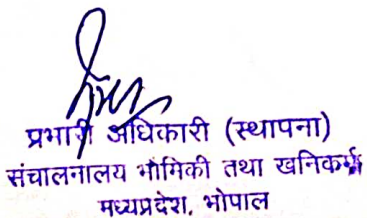 प्रभारी अधिकारी (स्थापना)
संचालनालय भौमिकी तथा खनिकर्म
मध्यप्रदेश, भोपाल